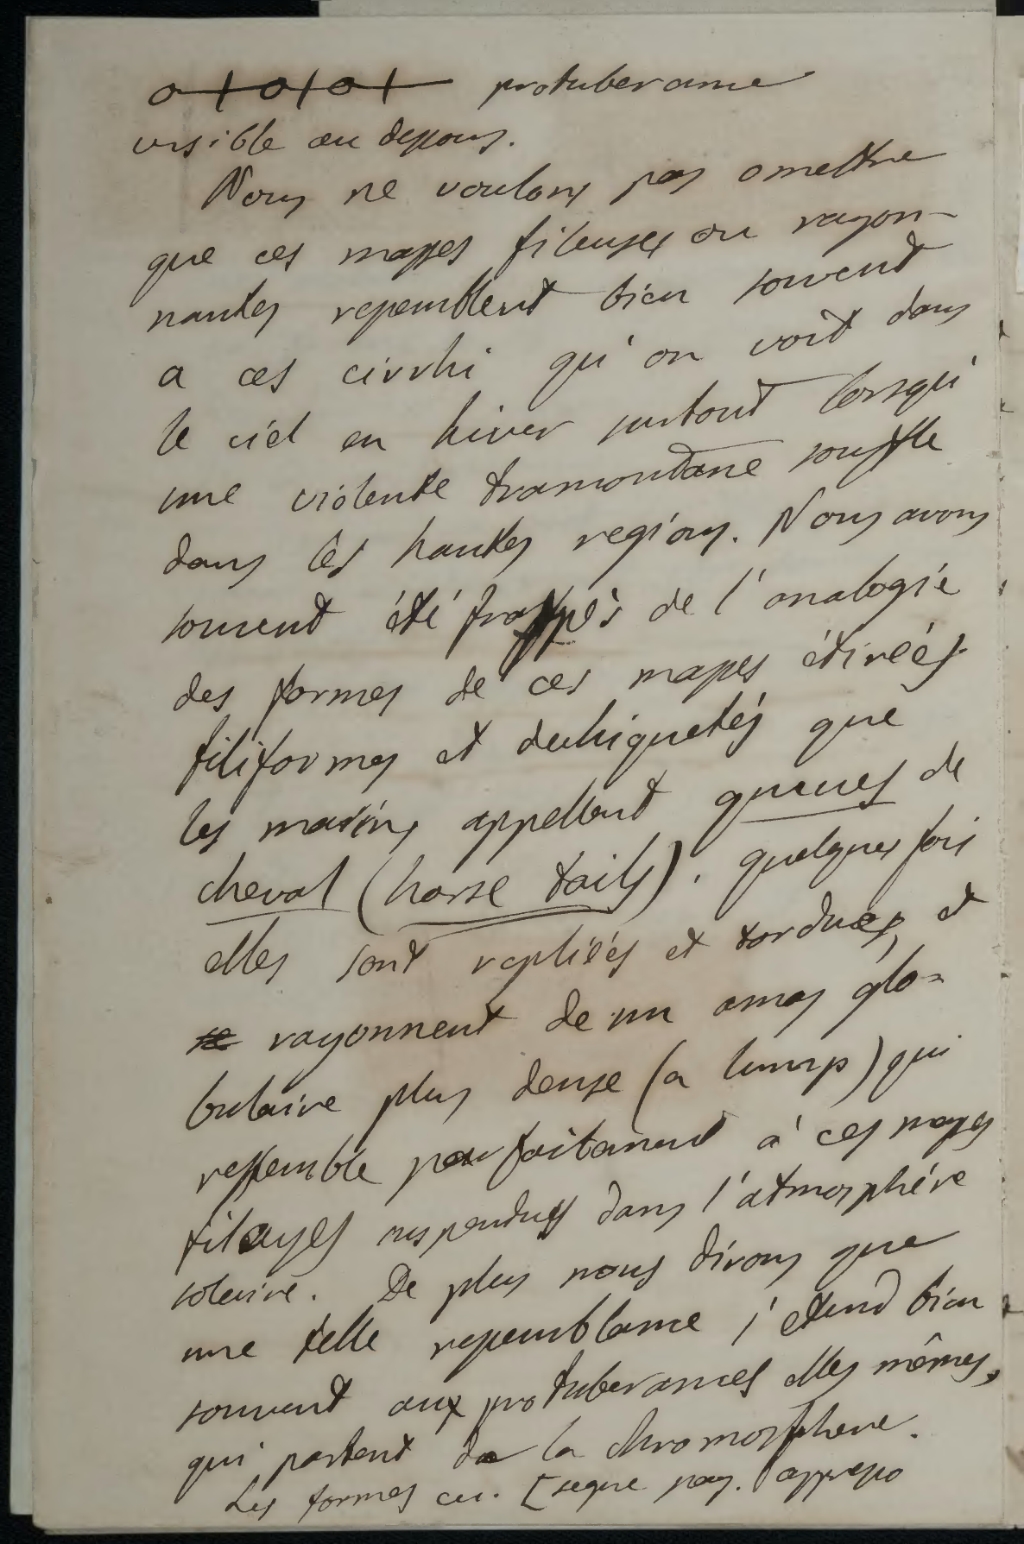 protuberance
visible au dessous.
Nous ne voulons pas omettre
que ces masses fileuses ou rayon-
nantes ressemblent bien souvent
a ces cirrhi qu'on voit dans
le ciel en hiver surtout lorsqu'
une violente tramontane souffle
dans les hautes regions. Nous avons
souvent été frappés de l'analogie
des formes de ces masses étireés
filiformes et dechiquetés que
les marins appellent queues de
cheval (horse tails). quelques fois
elles sont repliées et tordues, et
se rayonnent de un amas glo-
bulaire plus dense (a lump) qui
ressemble parfaitement à ces masses
suspendues dans l'atmosphére
solaire. De plus nous dirons que
une telle ressemblance s'etend bien
souvent aux protuberances elles mêmes,
qui partent de la chromosphere.
Les formes [segue pag. appresso